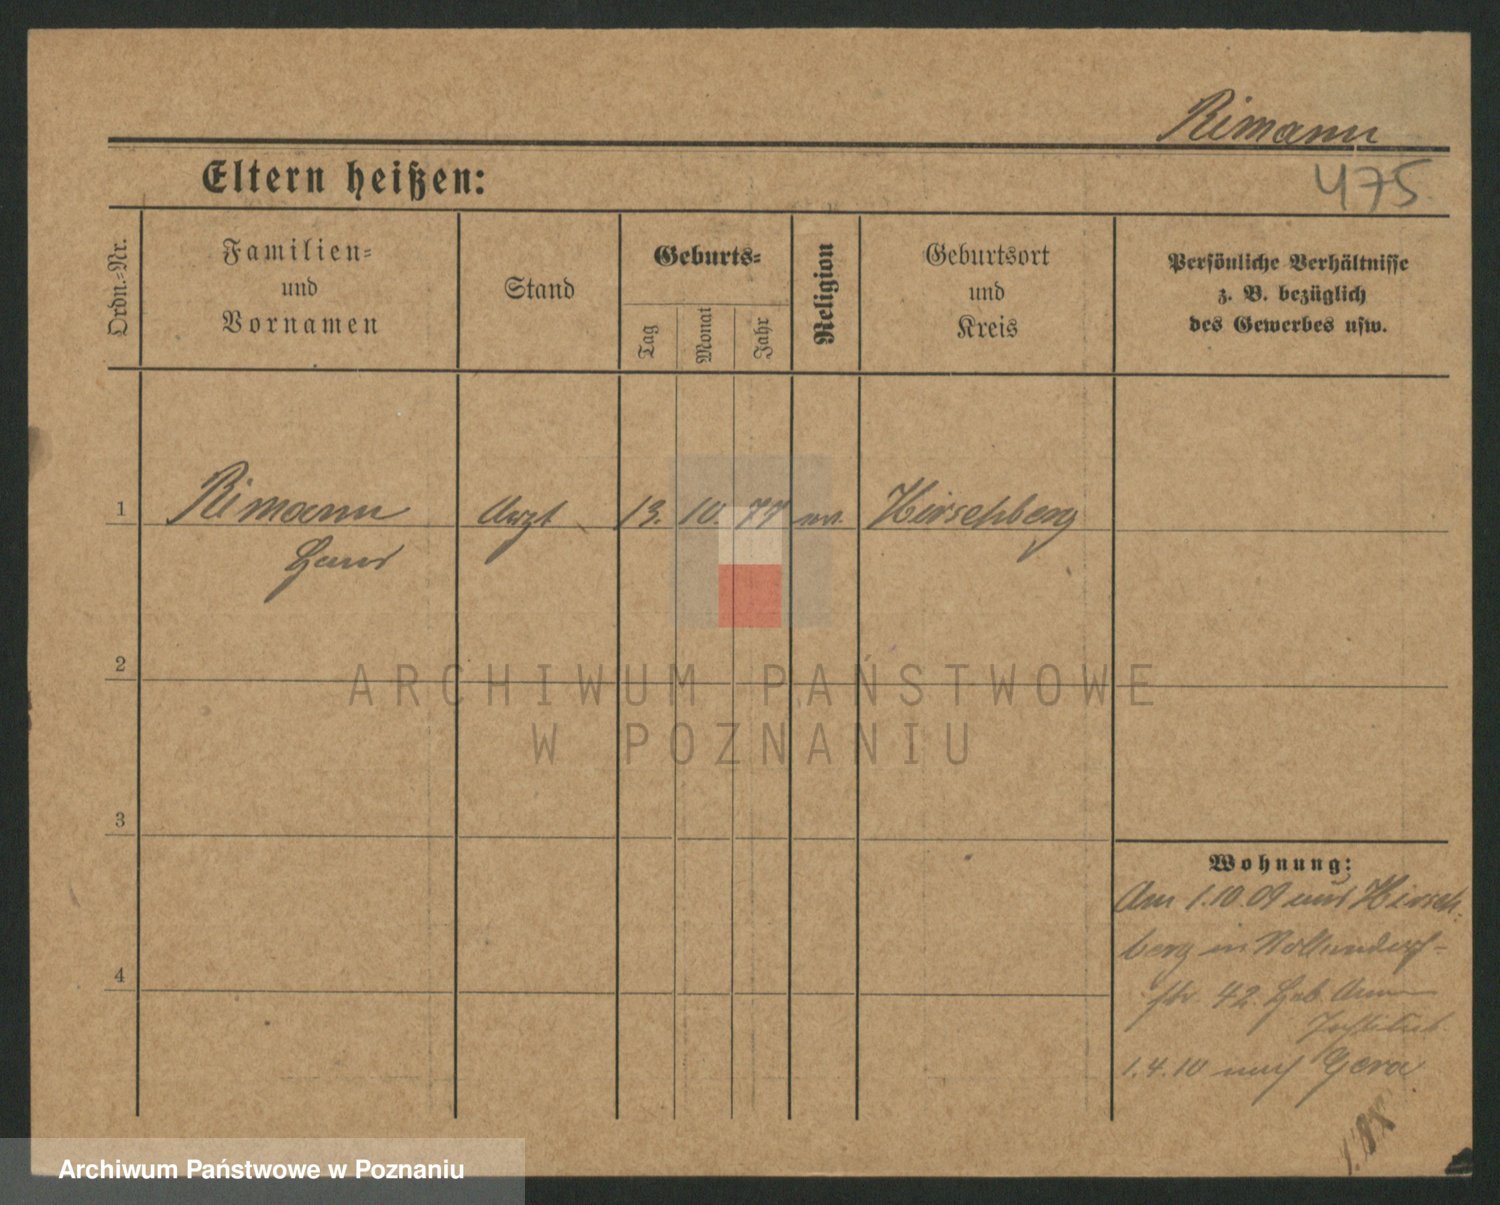 Rimann
Eltern heißen:
475.
Ordn.-Nr.
Familien-
und
Vornamen
Stand
Geburts-
Tag
Monat
Jahr
Religion
Geburtsort
und
Kreis
Persönliche Verhältnisse
z. B. bezüglich
des Gewerbes usw.
1
Rimann
Hans
Arzt
13. 10. 77
ev.
Hirschberg
2
ARCHIWUM PAŃSTWOWE
W POZNANIU
3
4
Wohnung:
Am 1.10.09 aus Hirsch-
berg in Nollendorf-
str 42. Heb. Amm
Institut.
1.4.10 nach Gera
Archiwum Państwowe w Poznaniu